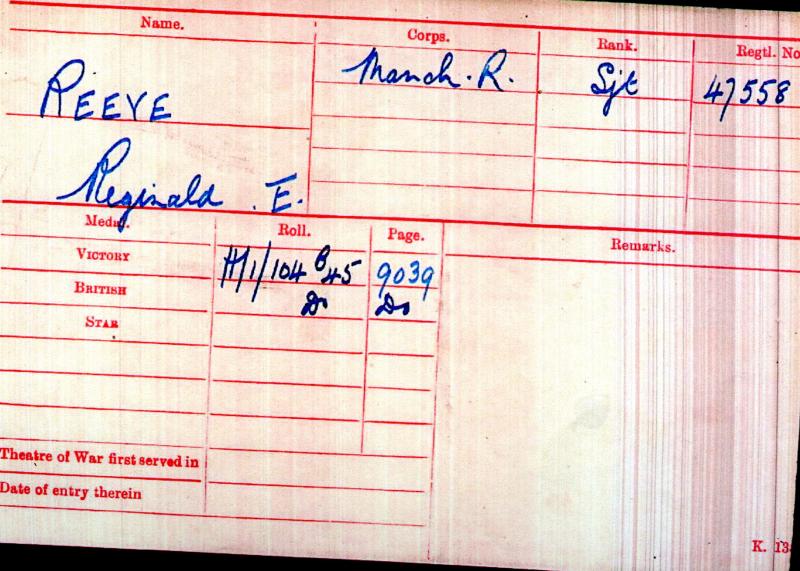 Name. Corps. Rank. Regtl. No
REEVE Manch. R. Sjt 47558
Reginald. E.
Medal. Roll. Page. Remarks.
VICTORY H/1/104 B45 9039
BRITISH Do Do
STAR
Theatre of War first served in
Date of entry therein
K. 13